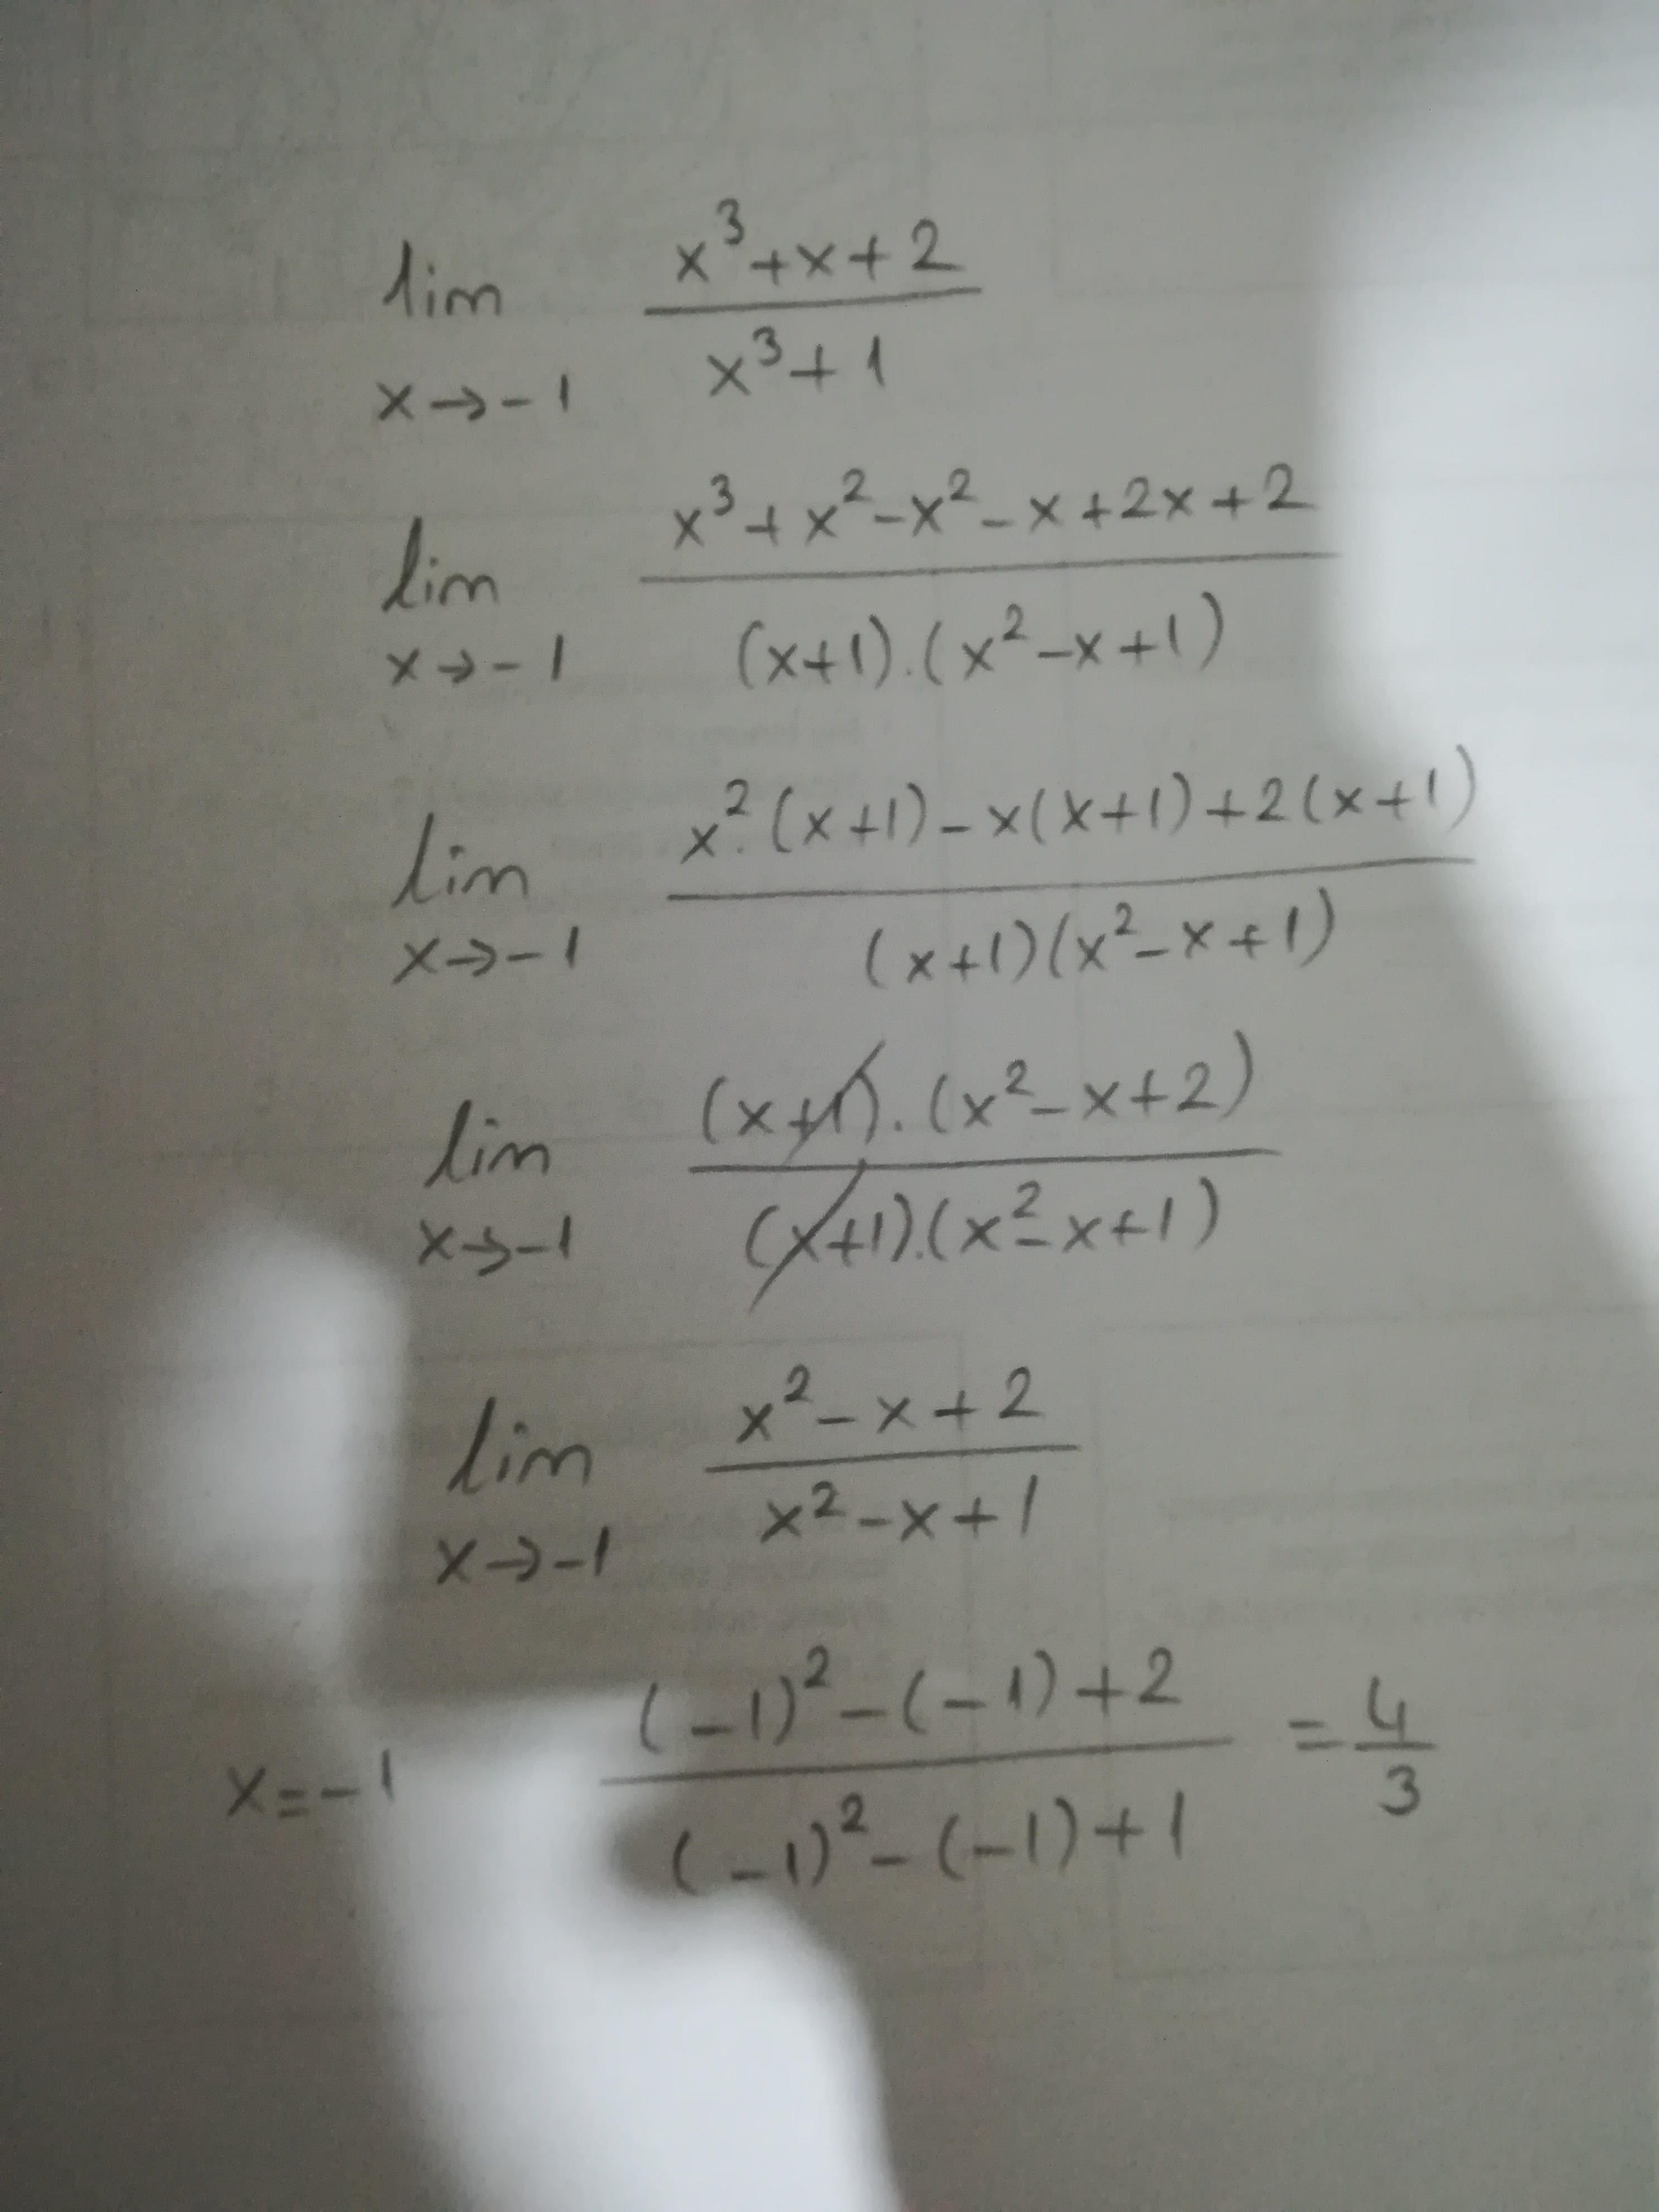 lim x→-1 (x³+x+2)/(x³+1)
lim x→-1 (x³+x²-x²-x+2x+2)/((x+1).(x²-x+1))
lim x→-1 (x².(x+1)-x(x+1)+2(x+1))/((x+1)(x²-x+1))
lim x→-1 ((x+1).(x²-x+2))/((x+1).(x²-x+1))
lim x→-1 (x²-x+2)/(x²-x+1)
x=-1 ((-1)²-(-1)+2)/((-1)²-(-1)+1) = 4/3